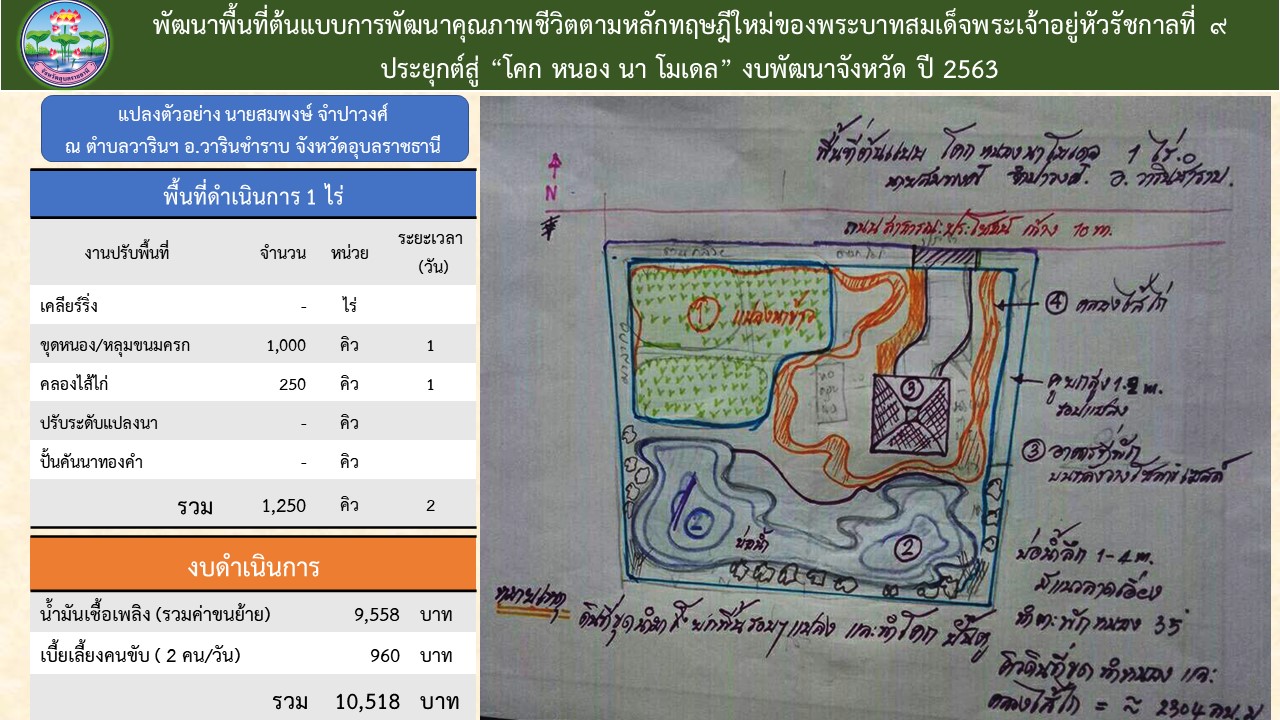 พัฒนาพื้นที่ต้นแบบการพัฒนาคุณภาพชีวิตตามหลักทฤษฎีใหม่ของพระบาทสมเด็จพระเจ้าอยู่หัวรัชกาลที่ ๙
ประยุกต์สู่ “โคก หนอง นา โมเดล” งบพัฒนาจังหวัด ปี 2563
จังหวัดอุบลราชธานี
แปลงตัวอย่าง นายสมพงษ์ จำปาวงศ์
ณ ตำบลวารินฯ อ.วารินชำราบ จังหวัดอุบลราชธานี
พื้นที่ดำเนินการ 1 ไร่
งานปรับพื้นที่ จำนวน หน่วย ระยะเวลา (วัน)
เคลียร์ริ่ง - ไร่
ขุดหนอง/หลุมขนมครก 1,000 คิว 1
คลองไส้ไก่ 250 คิว 1
ปรับระดับแปลงนา - คิว
ปั้นคันนาทองคำ - คิว
รวม 1,250 คิว 2
งบดำเนินการ
น้ำมันเชื้อเพลิง (รวมค่าขนย้าย) 9,558 บาท
เบี้ยเลี้ยงคนขับ ( 2 คน/วัน) 960 บาท
รวม 10,518 บาท
พื้นที่ต้นแบบ โคก หนอง นา โมเดล 1 ไร่
นายสมพงศ์ จำปาวงศ์ อ.วารินชำราบ.
N
ถนนสาธารณะประโยชน์ กว้าง 10 m.
① แปลงนาข้าว
④ คลองไส้ไก่
คูนกสูง 1.2 m.
รอบแปลง
③
③ อาคารที่พัก
②
บ่อน้ำ
②
บ่อน้ำลึก 1-4 m.
มีแนวลาดเอียง
หมายเหตุ
คิวดินที่ขุด ทำหนอง และ
คลองไส้ไก่ = ≈ 2304 ลบ.ม